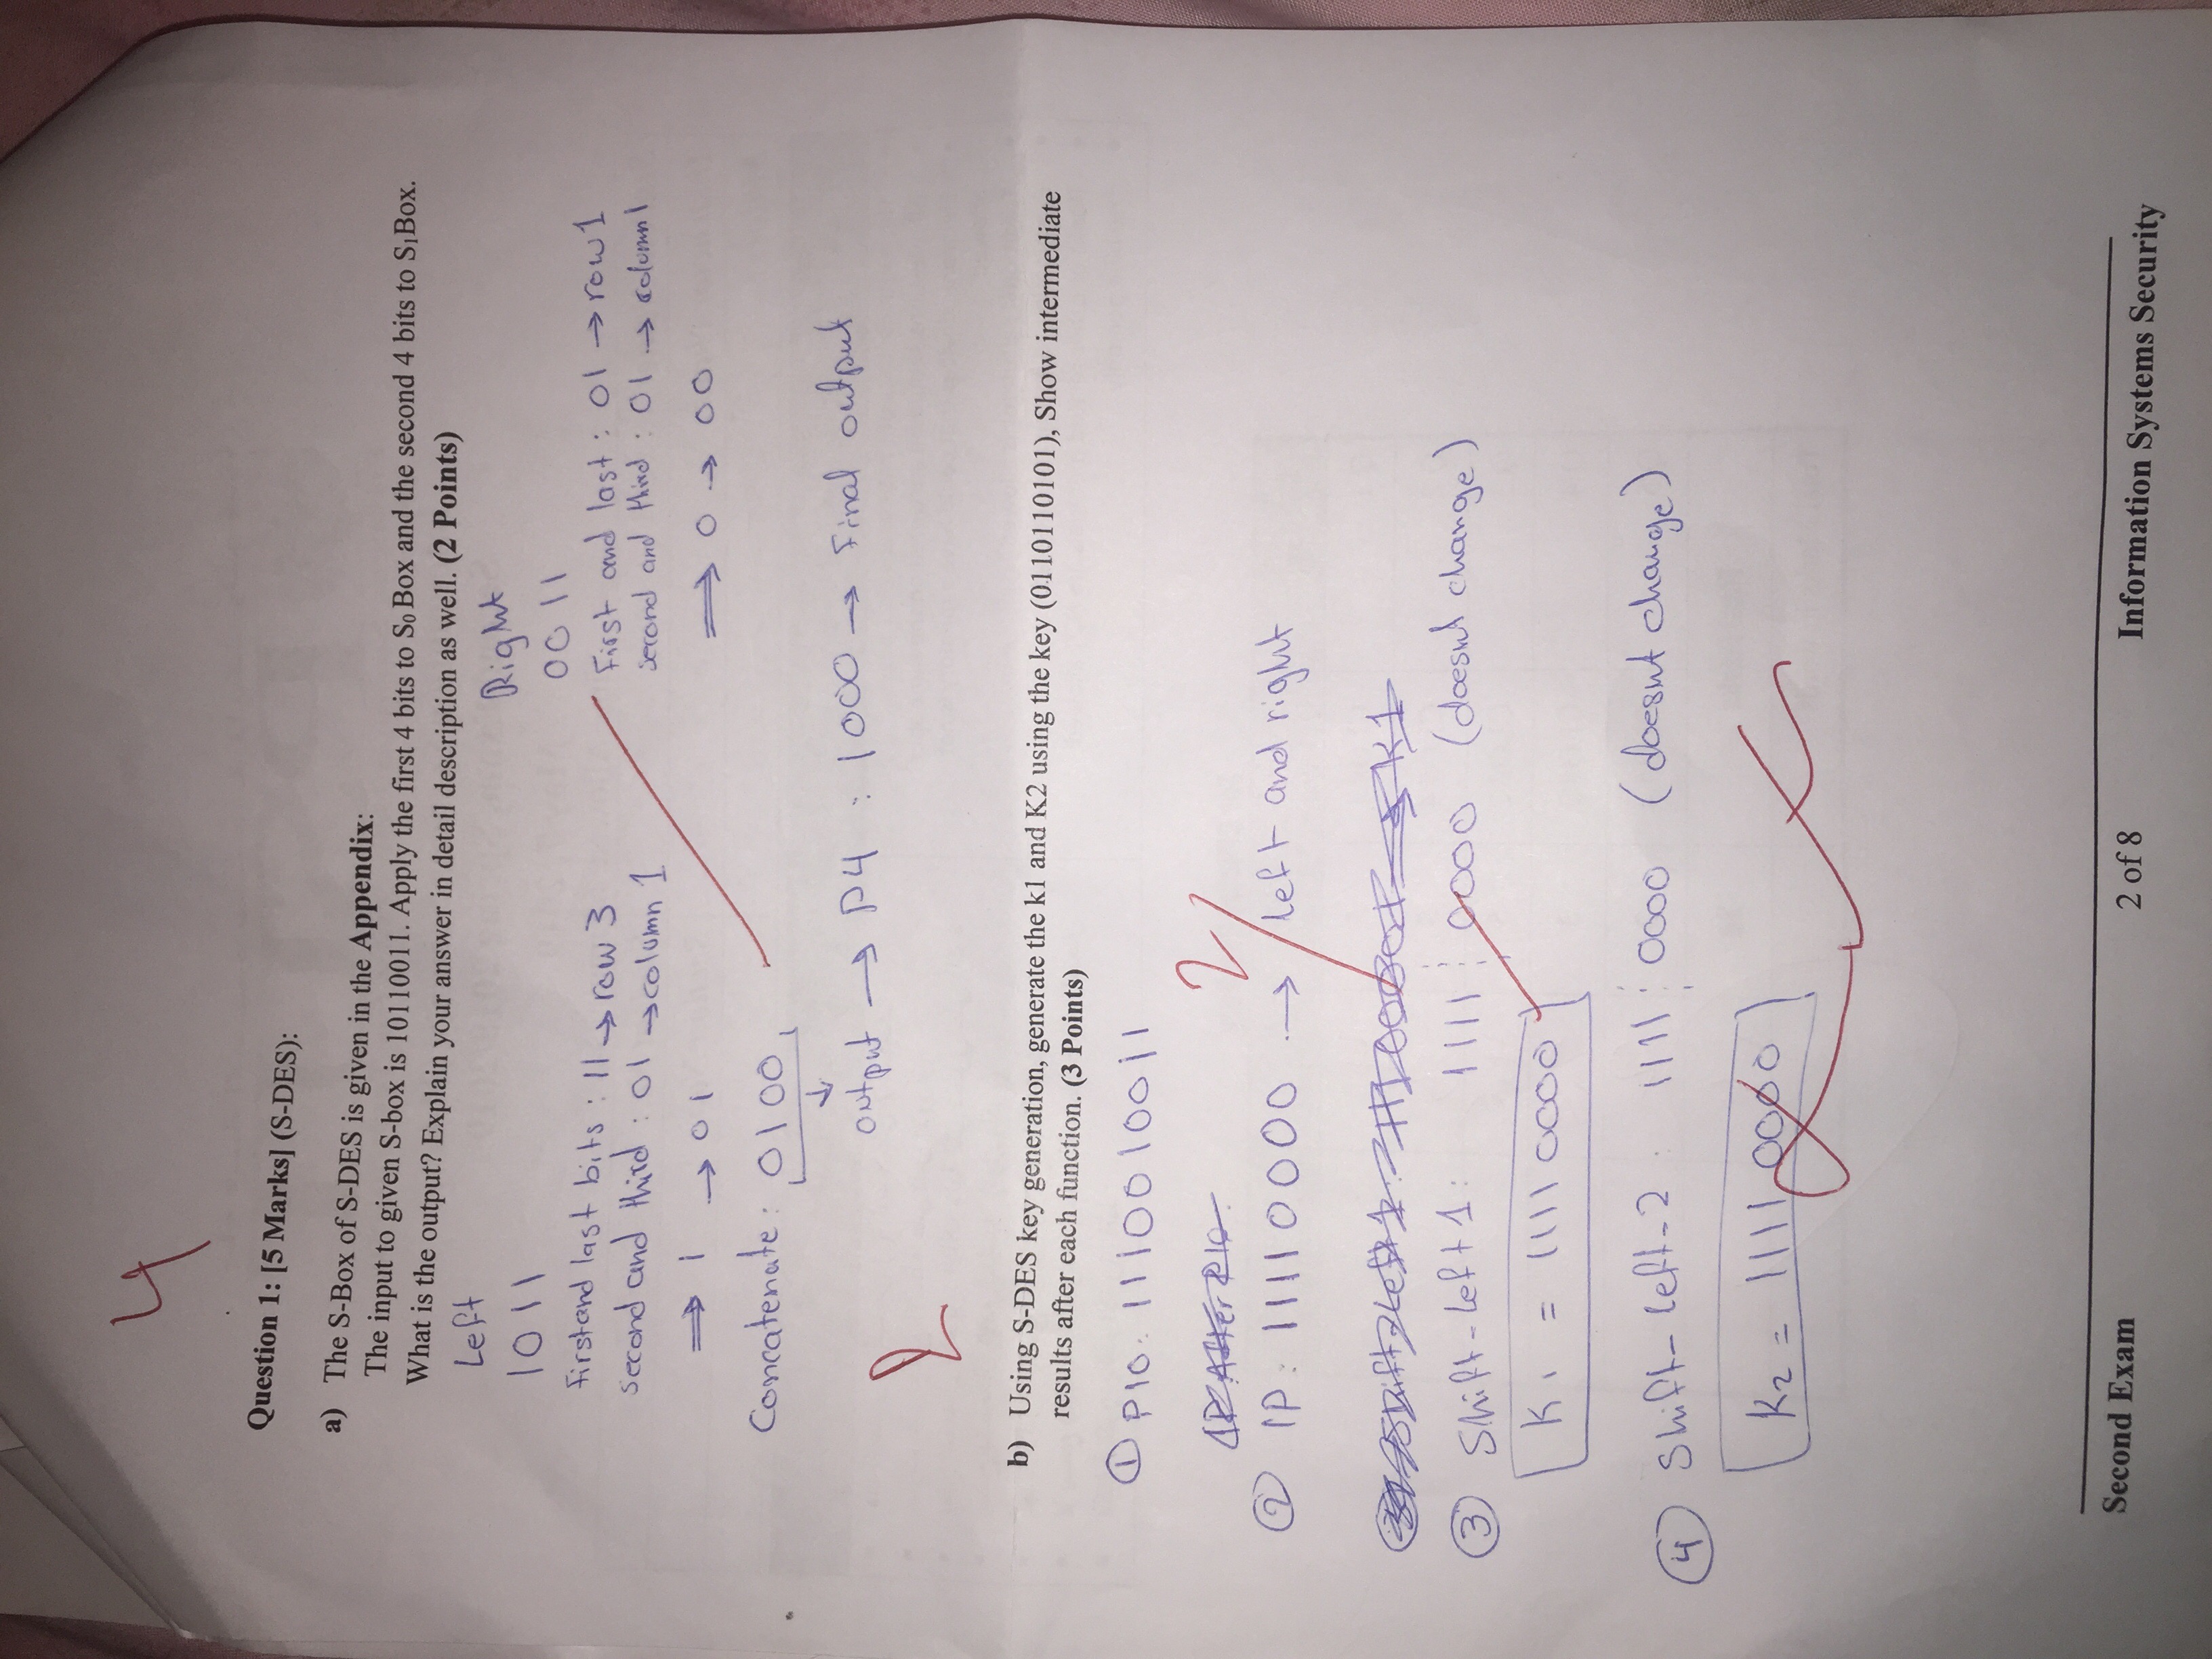 4
Question 1: [5 Marks] (S-DES):
a) The S-Box of S-DES is given in the Appendix:
The input to given S-box is 10110011. Apply the first 4 bits to S₀ Box and the second 4 bits to S₁Box.
What is the output? Explain your answer in detail description as well. (2 Points)
Left
1011
First and last bits : 11 → row 3
second and third : 01 → column 1
⇒ 1 → 01
Right
0011
First and last : 01 → row 1
second and third : 01 → column 1
⇒ 0 → 00
Concatenate : 0100
↓
output → P4 : 1000 → Final output
2
b) Using S-DES key generation, generate the k1 and K2 using the key (0110110101), Show intermediate
results after each function. (3 Points)
① P10: 1110010011
2
② IP: 11110000 → left and right
③ Shift-Left 1: 1111 0000 (doesnt change)
K1 = 11110000
④ Shift-left-2 : 1111 0000 (doesnt change)
K2 = 11110000
Second Exam
2 of 8
Information Systems Security